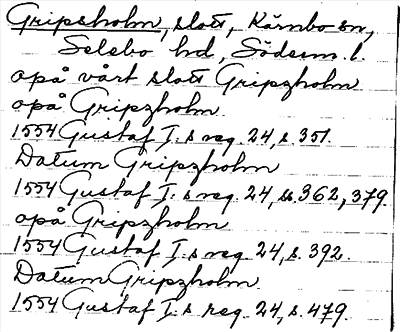 Gripsholm, slott, Kärnbo sn,
Selebo hd, Söderm. l.
opå vårt slott Gripzholm
opå Gripzholm
1554 Gustaf I:s reg. 24, s. 351.
Datum Gripzholm
1554 Gustaf I:s reg. 24, ss. 362, 379.
opå Gripzholm
1554 Gustaf I:s reg. 24, s. 392.
Datum Gripzholm
1554 Gustaf I:s reg. 24, s. 479.